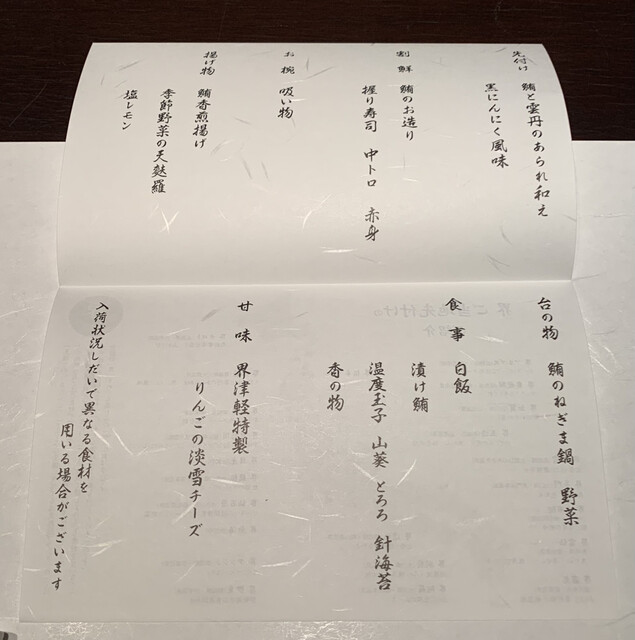 先付け　鮪と雲丹のあられ和え
黒にんにく風味
割鮮　鮪のお造り
握り寿司　中トロ　赤身
お椀　吸い物
揚げ物　鮪香煎揚げ
季節野菜の天麩羅
塩レモン
台の物　鮪のねぎま鍋　野菜
食事　白飯
漬け鮪
温度玉子　山葵　とろろ　針海苔
香の物
甘味　界津軽特製
りんごの淡雪チーズ
入荷状況しだいで異なる食材を
用いる場合がございます